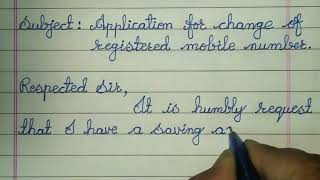 Subject: Application for change of
registered mobile number.
Respected Sir,
It is humbly request
that I have a saving a